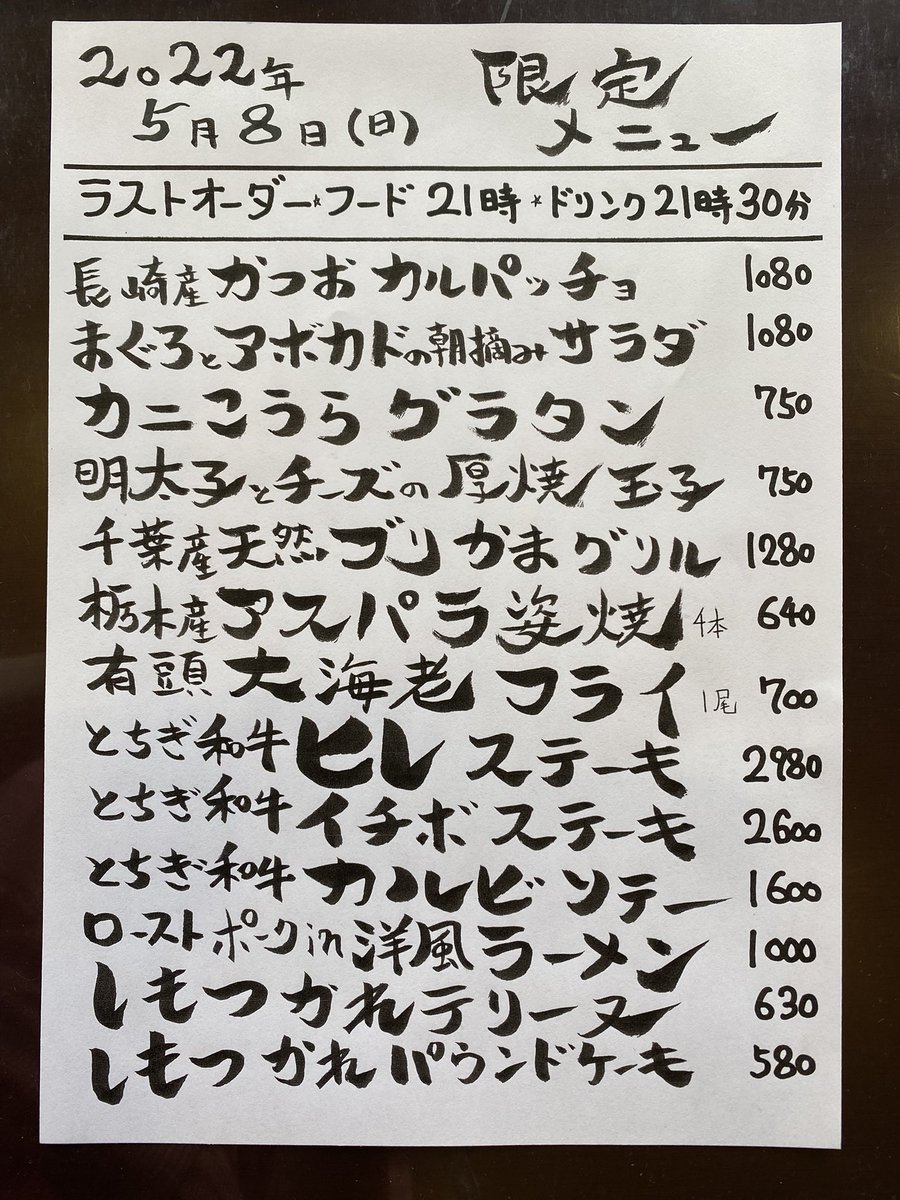 2022年
5月8日(日)
限定
メニュー
ラストオーダー*フード21時*ドリンク21時30分
長崎産かつおカルパッチョ 1080
まぐろとアボカドの朝摘みサラダ 1080
カニこうらグラタン 750
明太子とチーズの厚焼玉子 750
千葉産天然ブリかまグリル 1280
栃木産アスパラ姿焼4本 640
有頭大海老フライ1尾 700
とちぎ和牛ヒレステーキ 2980
とちぎ和牛イチボステーキ 2600
とちぎ和牛カルビソテー 1600
ローストポークin洋風ラーメン 1000
しもつかれテリーヌ 630
しもつかれパウンドケーキ 580